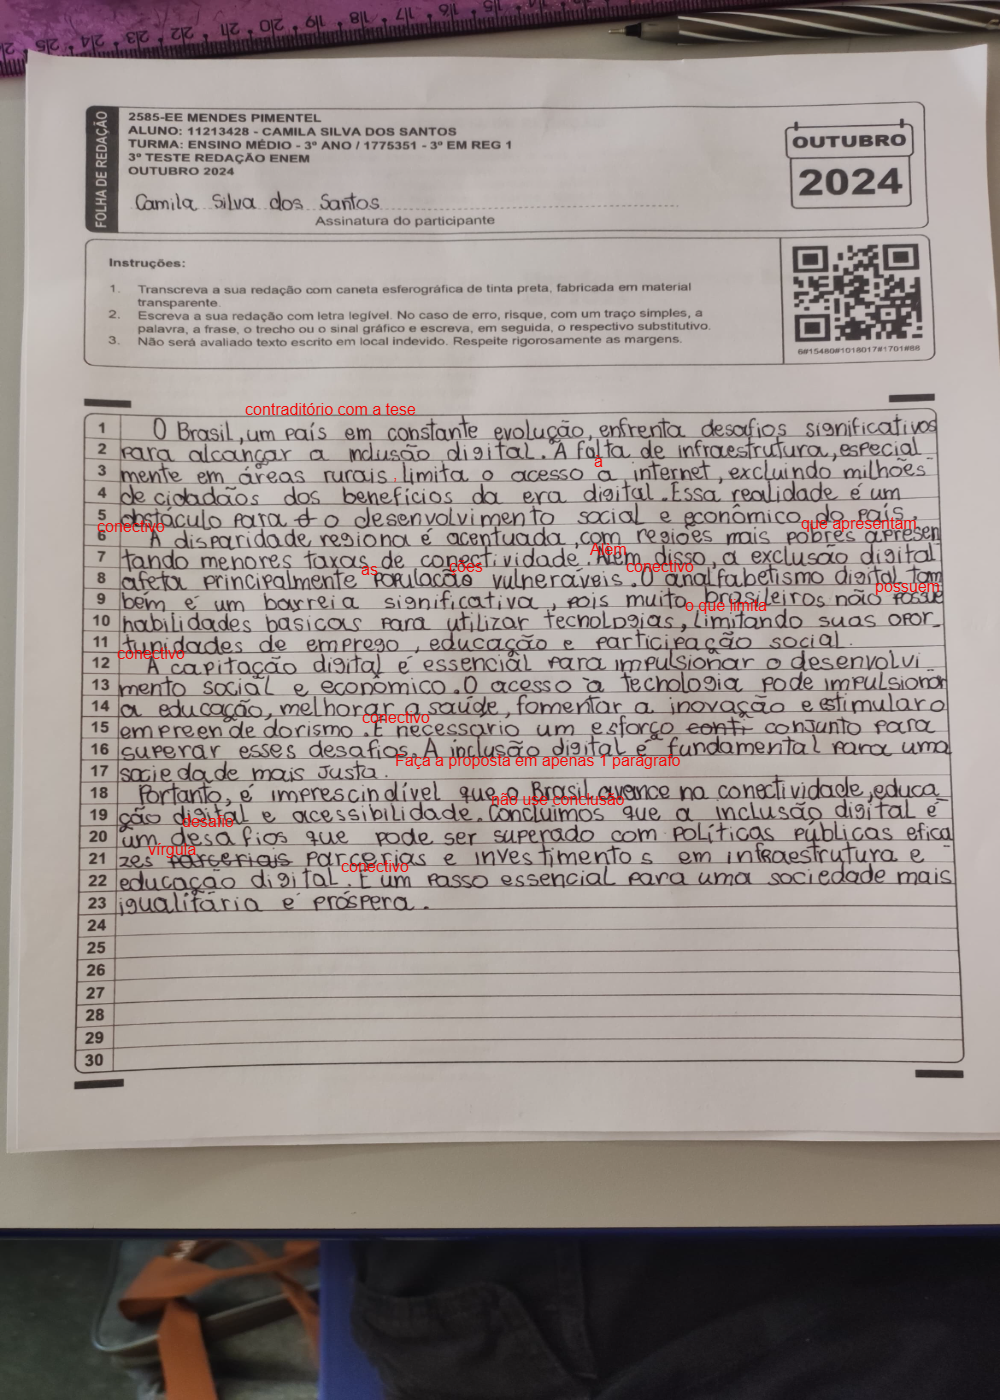 25 24 23 22 21 20 19 18 17 16 15
FOLHA DE REDAÇÃO
2585-EE MENDES PIMENTEL
ALUNO: 11213428 - CAMILA SILVA DOS SANTOS
TURMA: ENSINO MÉDIO - 3º ANO / 1775351 - 3º EM REG 1
3º TESTE REDAÇÃO ENEM
OUTUBRO 2024
Camila Silva dos Santos
Assinatura do participante
OUTUBRO
2024
Instruções:
1. Transcreva a sua redação com caneta esferográfica de tinta preta, fabricada em material
transparente.
2. Escreva a sua redação com letra legível. No caso de erro, risque, com um traço simples, a
palavra, a frase, o trecho ou o sinal gráfico e escreva, em seguida, o respectivo substitutivo.
3. Não será avaliado texto escrito em local indevido. Respeite rigorosamente as margens.
6#15480#1018017#1701#66
contraditório com a tese
1 O Brasil, um país em constante evolução, enfrenta desafios significativos
2 para alcançar a inclusão digital. A falta de infraestrutura, especial
a
3 mente em áreas rurais, limita o acesso à internet, excluindo milhões
4 de cidadãos dos benefícios da era digital. Essa realidade é um
5 obstáculo para o desenvolvimento social e econômico do país.
conectivo
que apresentam
6 A disparidade regiona é acentuada, com regiões mais pobres apresen
Além
7 tando menores taxas de conectividade. Alem disso, a exclusão digital
as
ções
conectivo
8 afeta principalmente população vulneráveis. O analfabetismo digital tam
possuem
9 bém é um barreia significativa, pois muito brasileiros não possue
o que limita
10 habilidades basicas para utilizar tecnologias, limitando suas opor-
11 tunidades de emprego, educação e participação social.
conectivo
12 A capitação digital é essencial para impulsionar o desenvolvi-
13 mento social e econômico. O acesso à tecnologia pode impulsionar
14 a educação, melhorar a saúde, fomentar a inovação e estimular o
conectivo
15 empreendedorismo. É necessário um esforço conti conjunto para
16 superar esses desafios. A inclusão digital é fundamental para uma
Faça a proposta em apenas 1 parágrafo
17 sociedade mais justa.
18 Portanto, é imprescindível que o Brasil avance na conectividade, educa
não use conclusão
19 ção digital e acessibilidade. Concluimos que a inclusão digital é
desafio
20 um desafios que pode ser superado com políticas públicas efica
virgula
21 zes parceriais parcerias e investimentos em infraestrutura e
conectivo
22 educação digital. É um passo essencial para uma sociedade mais
23 igualitária e próspera.
24
25
26
27
28
29
30